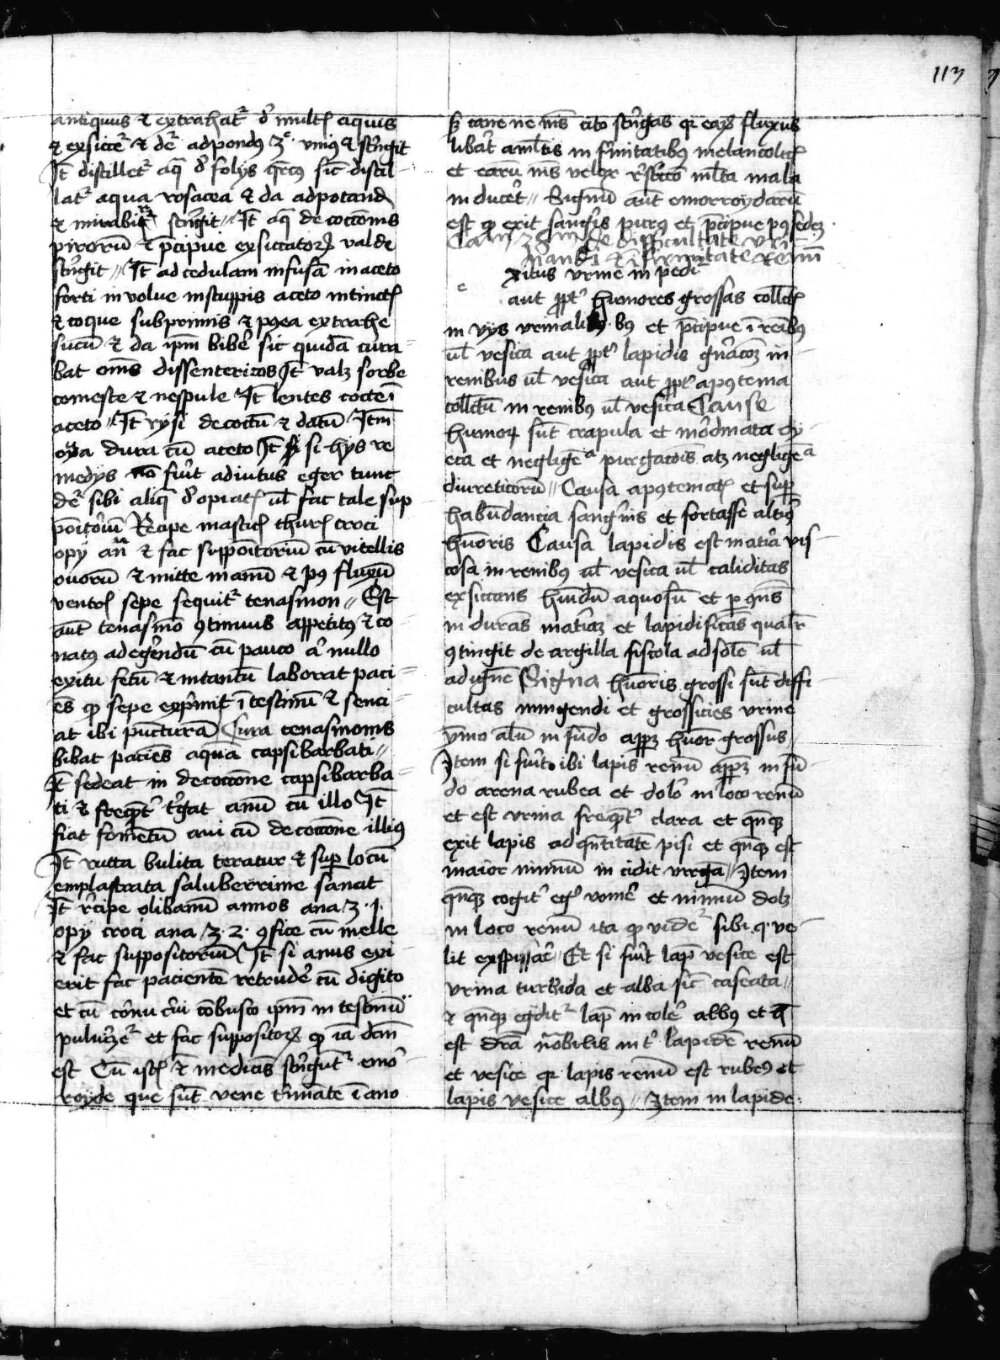 113
antiquus & extrahatr d multis aquis
& exsiccetr & detr ad pondus ʒe unius & stringit
Jt distilletr aqua d folys quercus sicut distil-
latr aqua rosacea & da ad potandum
& mirabiliter stringit // Jt aqua de coctionis
pirorum & precipue exsiccatorum valde
stringit // Jt acedulam infusam in aceto
forti involve in stuppis aceto intinctis
& coque sub prunis & postea extrahe
sucum & da ipsum bibere sic quidam cura-
bat omnes dissentericos Jt valet sorbe
comeste & nespule Jt lentes cocte in
aceto // Jt rysi decoctum & datum Jtem
ova dura cum aceto Jt si hys re
medys non fuerit adiutus eger tunc
detr sibi aliquid d opiatis vel fac tale sup
positorium Recipe masticis thuris croci
opy an & fac suppositorium cum vitellis
ovorum & mitte in anum & post fluxum
ventris sepe sequitr tenasmon // Est
autem tenasmon continuus appetitus & co-
natus ad egerendum cum pauco aut nullo
exitu fetum & in tantum laborat paci-
ens quod sepe exprimit intestinum & senci-
at ibi puncturam Cura tenasmonis
bibat paciens aquam capsibarbati //
Jt sedeat in decoctione capsibarba-
ti & frequenter tergat anum cum illo Jt
fiat fomentum ani cum decoctione illius
Jt rutta bulita teratur & super locum
emplastrata saluberrime sanat
Jt recipe olibanum annos ana ʒ · j ·
opy croci ana ʒ · 2 · confice cum melle
& fac suppositorium Jt si anus exi
erit fac pacientem retrudere cum digito
et cum cornu cervi combusto ipsum intestinum
pulverizetr et fac suppositorium quod iam dictum
est Cum istis & medicinis stringuntr emo-
royde que sunt vene terminate in ano
sed cave ne nimis cito stringas quia earum fluxus
liberat a multis infirmitatibus melancolicis
et earum nimis velox restrictio multa mala
induceret // Signum autem emorroydarum
est quod exit sanguis purus et precipue post sedes
Cam de difficultate uri-
nandi & infirmitate renum
e
xitus urine impeditr
aut propter humores grossas collectis
in vys urinalibus et precipue in renibus
vel vesica aut propter lapidis generacionem in
renibus vel vesica aut propter apostema
collectum in renibus vel vesica Cause
humorum sunt crapula et inordinata dy-
eta et negligencia purgationis atque negligencia
diureticorum // Causa apostematis est super
habundancia sanguinis et fortasse alterius
humoris Causa lapidis est materia vis-
cosa in renibus vel vesica vel caliditas
exsiccans humidum aquosum et per consequens
indurans materiam et lapidificans qualiter
contingit de argilla fiscola ad solem vel
ad ignem Signa humoris grossi sunt diffi-
cultas mingendi et grossicies urine
ymo alium in fundo apparet humor grossus
Jtem si fuerit ibi lapis renum apparet in fun-
do arena rubea et dolor in loco renum
et est urina frequenter clara et quandoque
exit lapis ad quantitatem pisi et quandoque est
maior nimium incidit virgam // Jtem
quandoque cogitur eger vomere et nimium dolet
in loco renum ita quod videtr sibi quod ve-
lit exspirare // Et si fuerit lapis vesice est
urina turbida et alba sicut caseata //
& quandoque egreditr lapis in colore albus et hec
est differencia notabilis inter lapidem renum
et vesice quia lapis renum est rubeus et
lapis vesice albus // Jtem in lapide